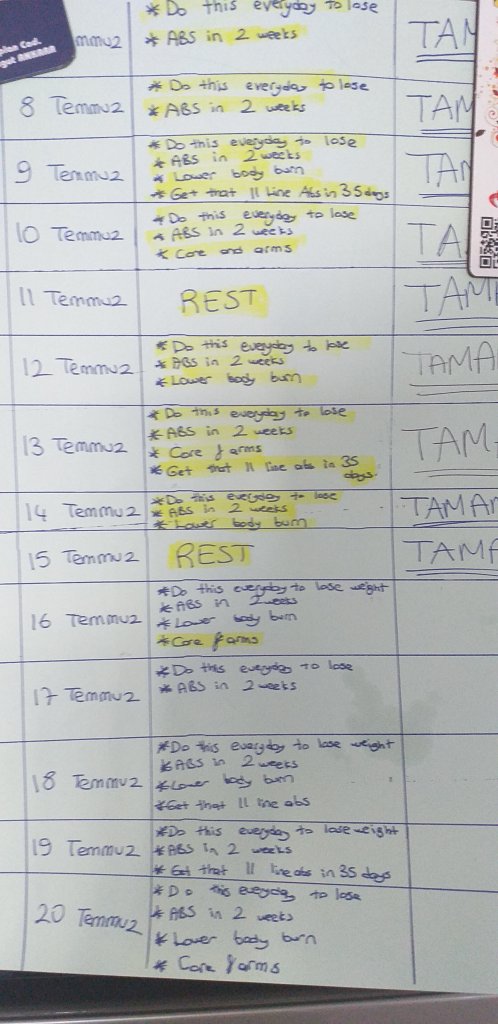 * Do this everyday to lose
mmuz * ABS in 2 weeks TAM
plan Cad.
gut ANKARA
8 Temmuz * Do this everyday to lose TAM
* ABS in 2 weeks
9 Temmuz * Do this everyday to lose TAM
* ABS in 2 weeks
* Lower body burn
* Get that 11 Line Abs in 35 days
10 Temmuz * Do this everyday to lose TA
* ABS in 2 weeks
* Core and arms
11 Temmuz REST TAMA
12 Temmuz * Do this everyday to lose TAMA
* ABS in 2 weeks
* Lower body burn
13 Temmuz * Do this everyday to lose TAMA
* ABS in 2 weeks
* Core & arms
* Get that 11 line abs in 35
days.
14 Temmuz * Do this everyday to lose TAMAM
* ABS in 2 weeks
* Lower body burn
15 Temmuz REST TAMA
16 Temmuz * Do this everyday to lose weight
* ABS in 2 weeks
* Lower body burn
* Core & arms
17 Temmuz * Do this everyday to lose
* ABS in 2 weeks
18 Temmuz * Do this everyday to lose weight
* ABS in 2 weeks
* Lower body burn
* Get that 11 line abs
19 Temmuz * Do this everyday to lose weight
* ABS in 2 weeks
* Get that 11 line abs in 35 days
20 Temmuz * Do this everyday to lose
* ABS in 2 weeks
* Lower body burn
* Core & arms